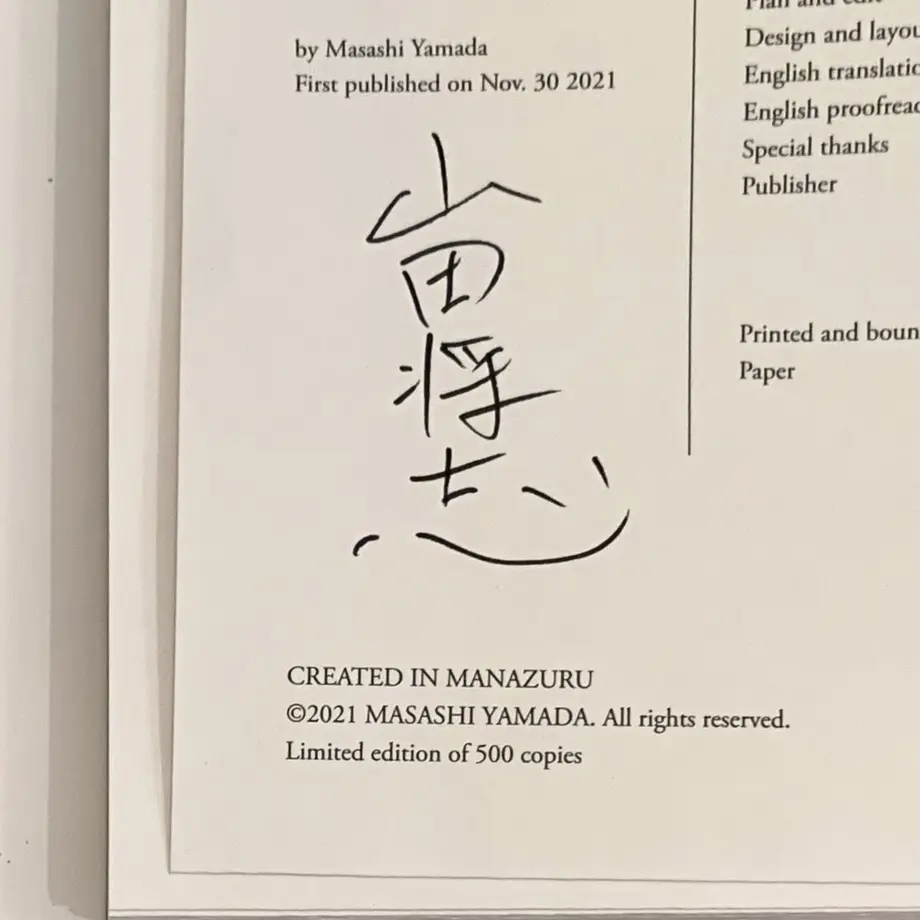 by Masashi Yamada
First published on Nov. 30 2021
山田将志
CREATED IN MANAZURU
©2021 MASASHI YAMADA. All rights reserved.
Limited edition of 500 copies
Plan and edit
Design and layou
English translatio
English proofread
Special thanks
Publisher
Printed and boun
Paper